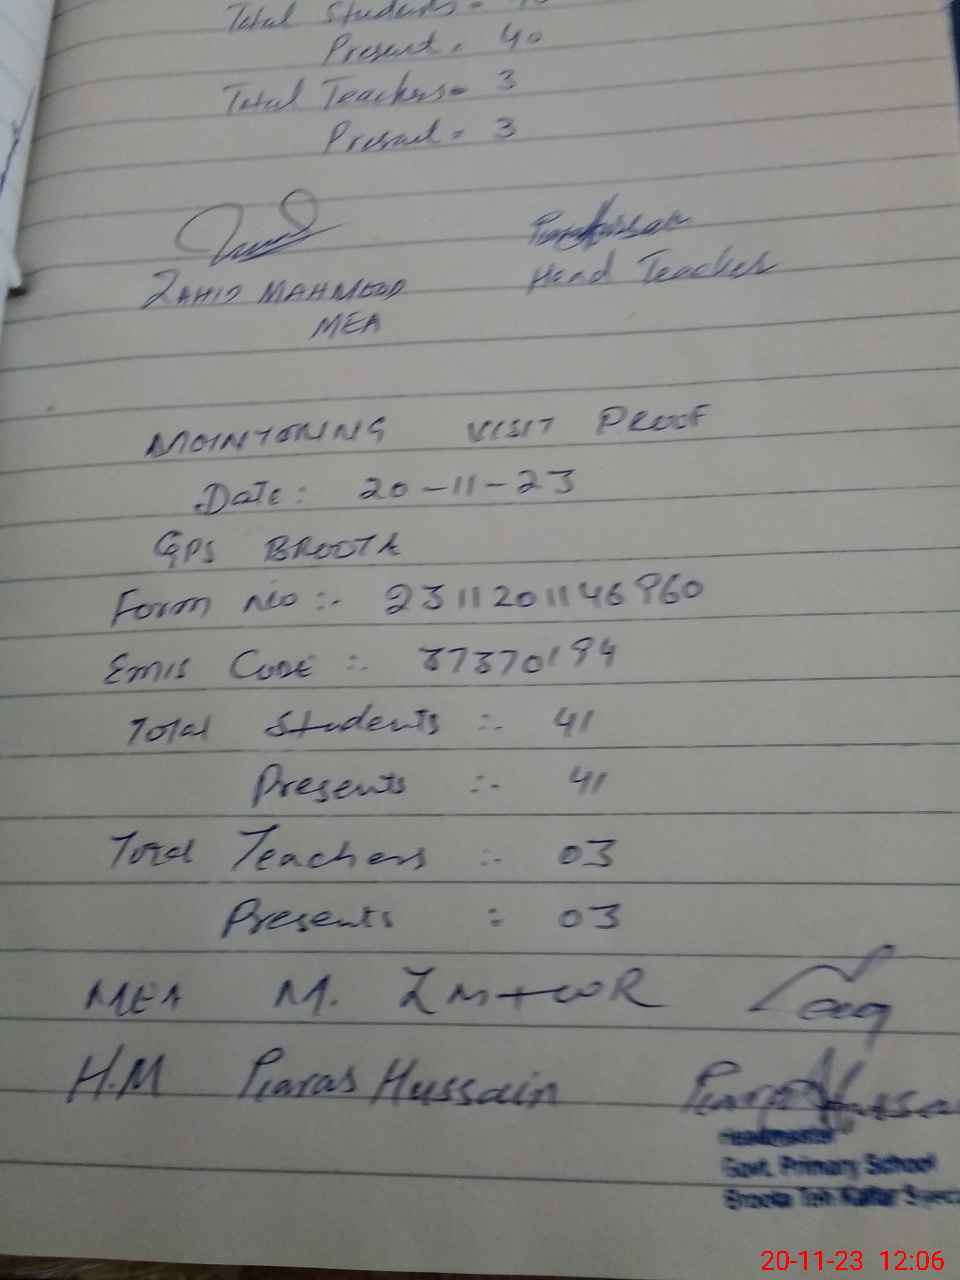 Total Students =
Present = 40
Total Teachers = 3
Present = 3
ZAHID MAHMOOD
Head Teacher
MEA
MOINTORING VISIT PROOF
Date: 20-11-23
GPS BROOTA
Form No :- 2311201146960
Emis Code :- 37370194
Total Students :- 41
Presents :- 41
Total Teachers :- 03
Presents : 03
MEA M.
H.M Piaras Hussain
Headmaster
Govt. Primary School
Broota Teh Kallar
20-11-23 12:06